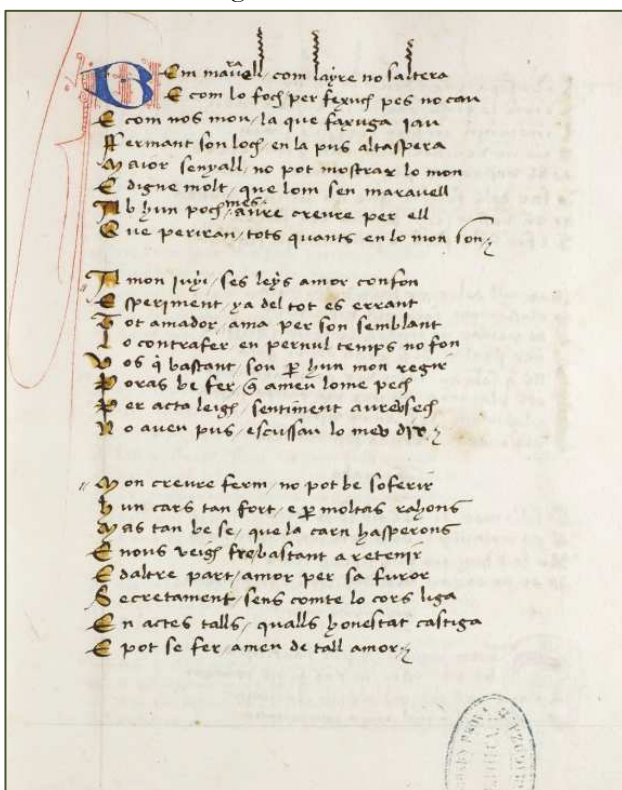 Em maraვell com layre no saltera
E com lo foch per fexuch pes no cau
E com nos mou la que faxuga iau
Fermant son loch en la pus altaspera
Maior senyall no pot mostrar lo mon
E digne molt que lom sen maravell
Ab hun poch mes aure creure per ell
Que periran tots quants en lo mon son
A mon iuyi ses leys amor confon
Esperiment ya del tot es errant
Tot amador ama per son semblant
Lo contrafer en pernul temps no fon
Vos q̃ bastant sou ꝑ hun mon regir
Poras be fer q̃ ameu lome pech
Per acta leig sentiment aureu sech
No aveu pus escussau lo meu dir
Mon creure ferm no pot be soferir
hun cars tan fort e ꝑ moltas rahons
Mas tan be se que la carn hasperons
E nous veig fre bastant a retenir
E daltre part amor per sa furor
Secretament sens comte lo cors liga
En actes talls qualls honestat castiga
E pot se fer amen de tall amor